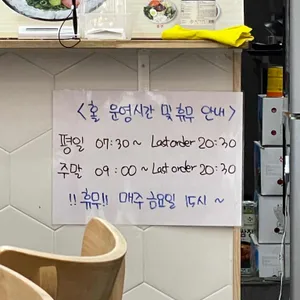 <홀 운영시간 및 휴무 안내>
평일 07:30~ Last order 20:30
주말 09:00~ Last order 20:30
!!휴무!! 매주 금요일 15시 ~